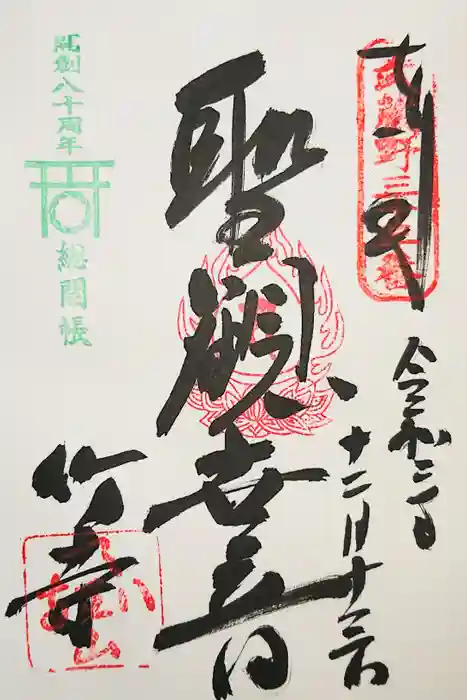 奉拝
武蔵野三十三番
令和三年
十二月十三日
聖観世音
開創八十周年
総開帳
竹寺